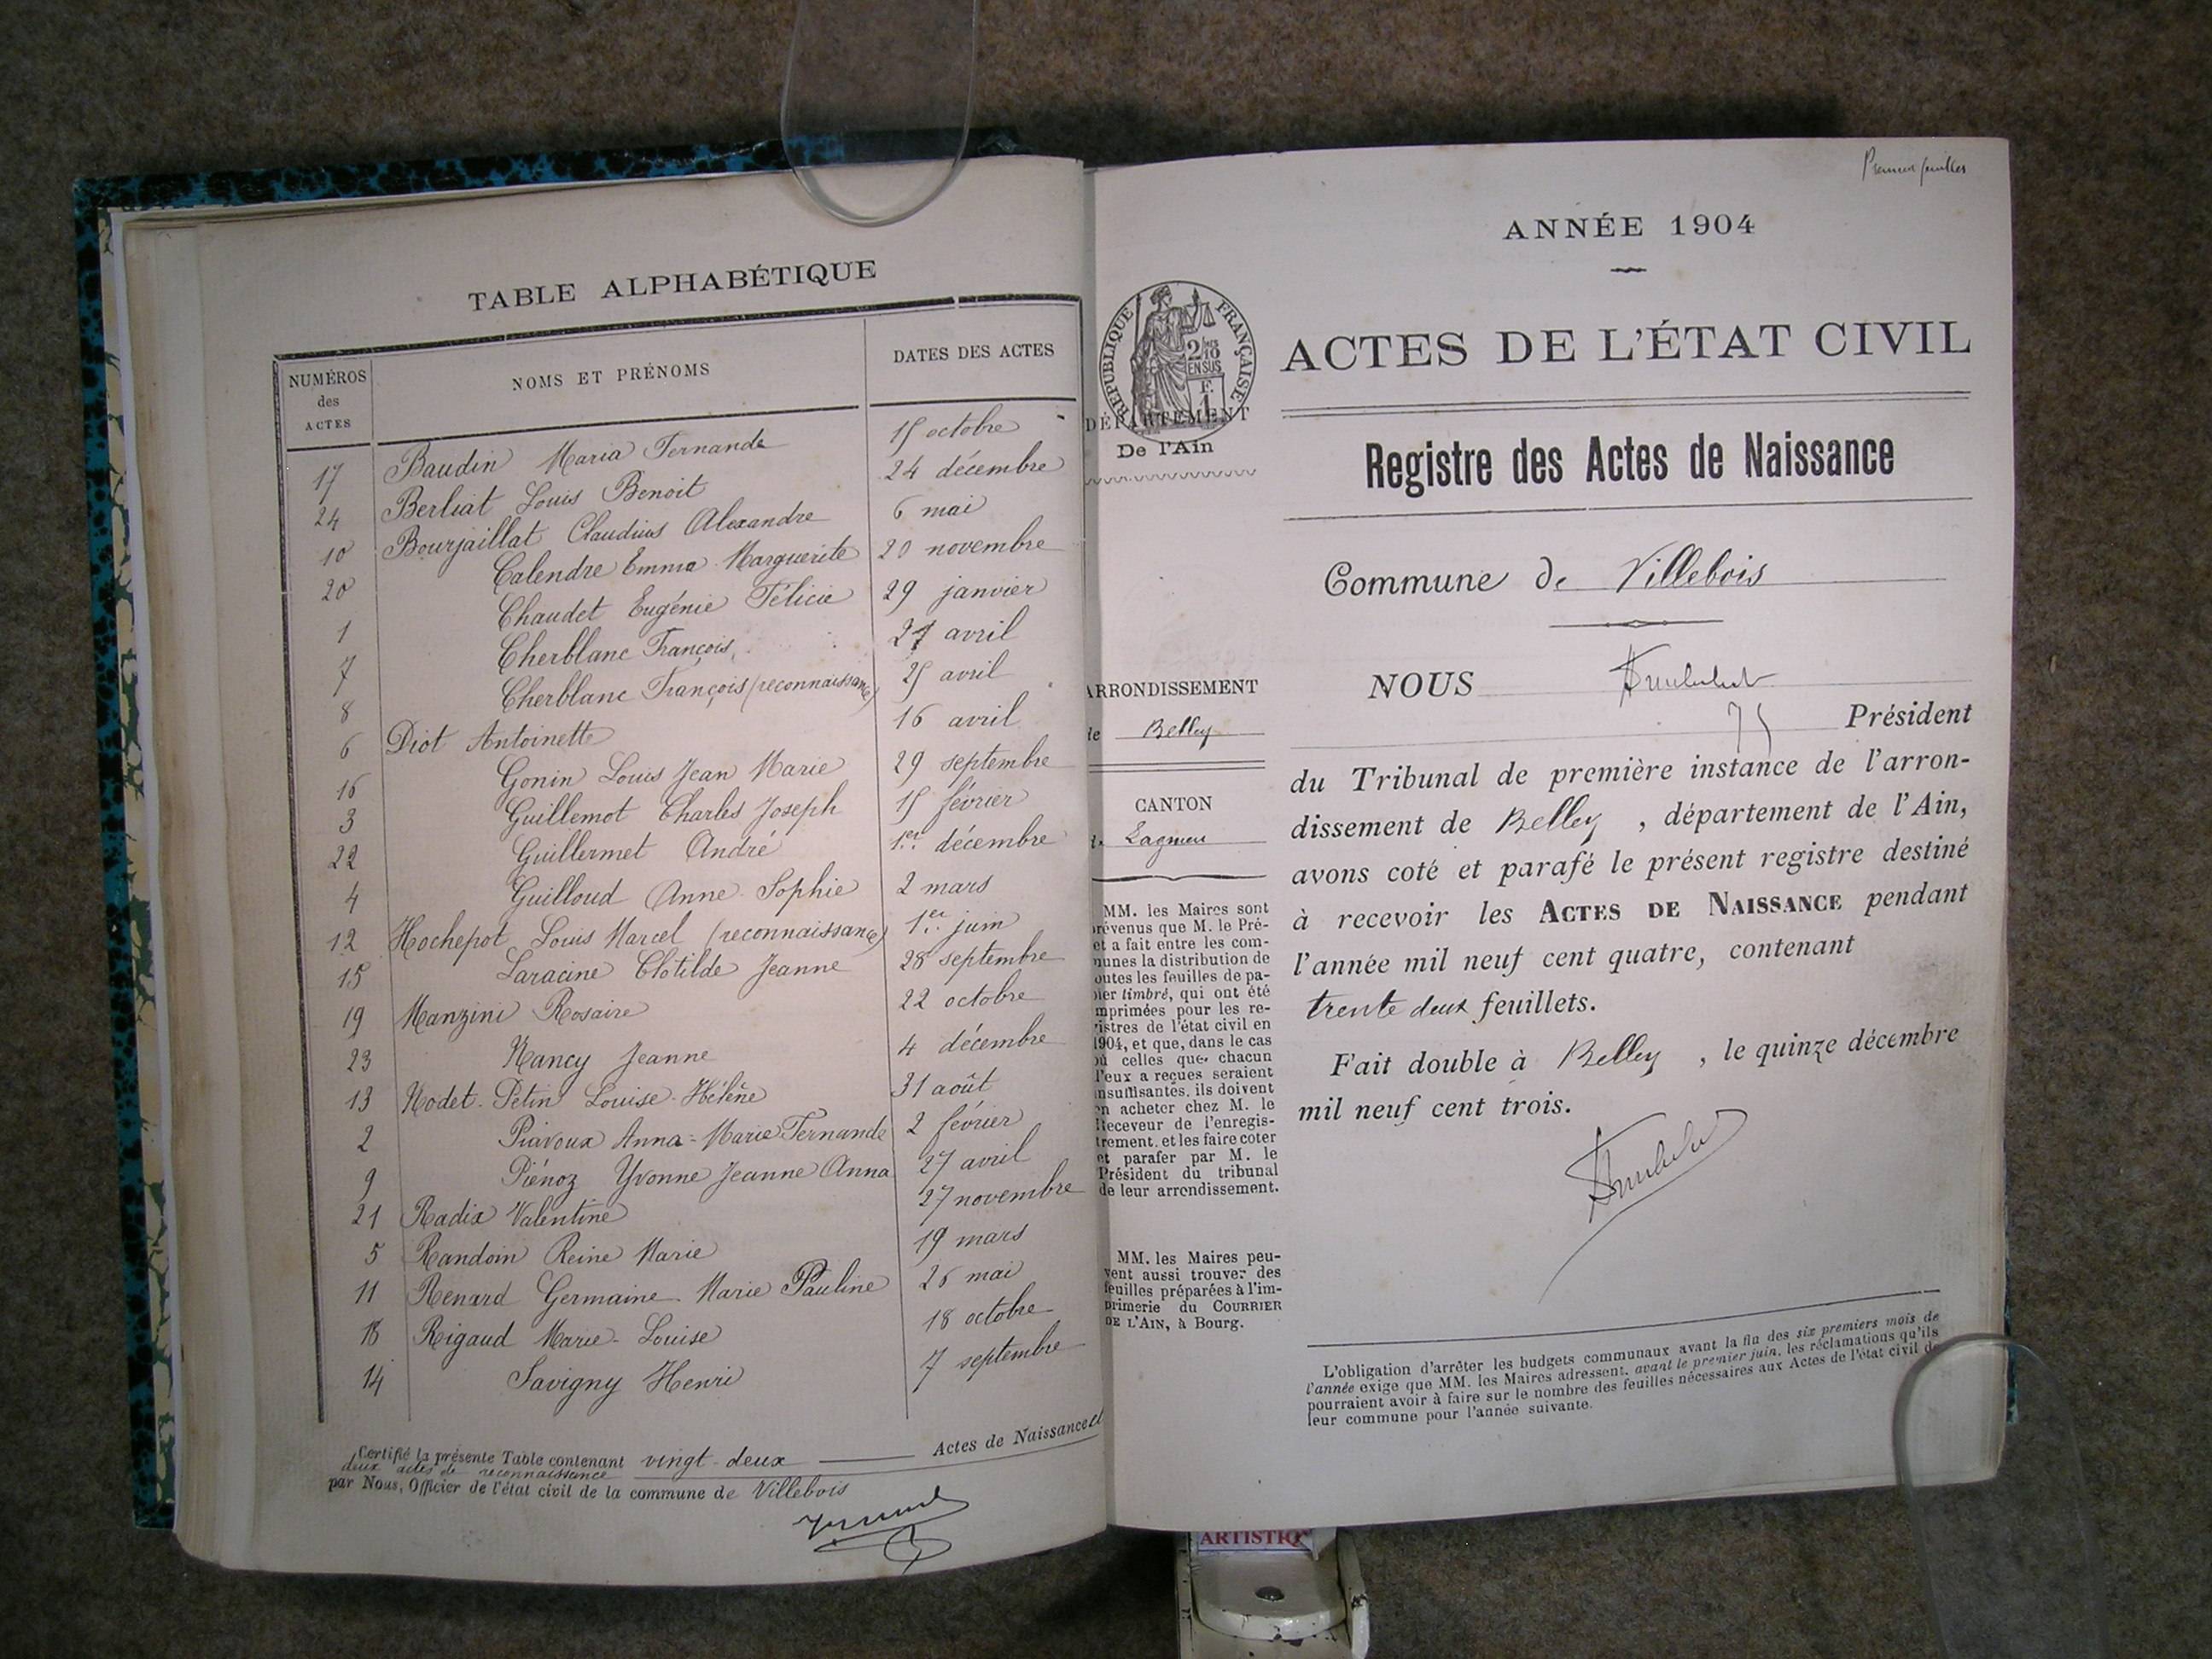 TABLE ALPHABÉTIQUE
NUMÉROS des ACTES
NOMS ET PRÉNOMS
DATES DES ACTES
17 Baudin Maria Fernande 15 octobre
24 Berliat Louis Benoit 24 décembre
10 Bourjaillat Claudius Alexandre 6 mai
20 Calendre Emma Marguerite 20 novembre
1 Chaudet Eugénie Félicie 29 janvier
7 Cherblanc François 27 avril
8 Cherblanc François (reconnaissance) 25 avril
6 Diot Antoinette 16 avril
16 Gonin Louis Jean Marie 29 septembre
3 Guillemot Charles Joseph 15 février
22 Guillermet André 1er décembre
4 Guilloud Anne Sophie 2 mars
12 Hochepot Louis Marcel (reconnaissance) 1er juin
15 Laracine Clotilde Jeanne 28 septembre
19 Manzini Rosaire 22 octobre
23 Nancy Jeanne 4 décembre
13 Nodet-Petin Louise-Hélène 31 août
2 Piavoux Anna-Marie Fernande 2 février
9 Piénoz Yvonne Jeanne Anna 27 avril
21 Radix Valentine 27 novembre
5 Randoin Reine Marie 19 mars
11 Renard Germaine Marie Pauline 26 mai
18 Rigaud Marie-Louise 18 octobre
14 Savigny Henri 7 septembre
Certifié la présente Table contenant vingt-deux Actes de Naissance et
deux actes de reconnaissance
par Nous, Officier de l'état civil de la commune de Villebois
ANNÉE 1904
ACTES DE L'ÉTAT CIVIL
RÉPUBLIQUE FRANÇAISE
2/10
EN SUS
F.
1
DÉPARTEMENT
De l'Ain
Registre des Actes de Naissance
Commune de Villebois
NOUS
Président
du Tribunal de première instance de l'arron-
dissement de Belley, département de l'Ain,
avons coté et parafé le présent registre destiné
à recevoir les ACTES DE NAISSANCE pendant
l'année mil neuf cent quatre, contenant
trente deux feuillets.
Fait double à Belley, le quinze décembre
mil neuf cent trois.
ARRONDISSEMENT
de Belley
CANTON
de Lagnieu
MM. les Maires sont
prévenus que M. le Pré-
et a fait entre les com-
munes la distribution de
toutes les feuilles de pa-
pier timbré, qui ont été
imprimées pour les re-
gistres de l'état civil en
1904, et que, dans le cas
où celles que chacun
d'eux a reçues seraient
insuffisantes, ils doivent
en acheter chez M. le
Receveur de l'enregis-
trement, et les faire coter
et parafer par M. le
Président du tribunal
de leur arrondissement.
MM. les Maires peu-
vent aussi trouver des
feuilles préparées à l'im-
primerie du COURRIER
DE L'AIN, à Bourg.
L'obligation d'arrêter les budgets communaux avant la fin des six premiers mois de
l'année exige que MM. les Maires adressent, avant le premier juin, les réclamations qu'ils
pourraient avoir à faire sur le nombre des feuilles nécessaires aux Actes de l'état civil de
leur commune pour l'année suivante.
ARTISTIQ